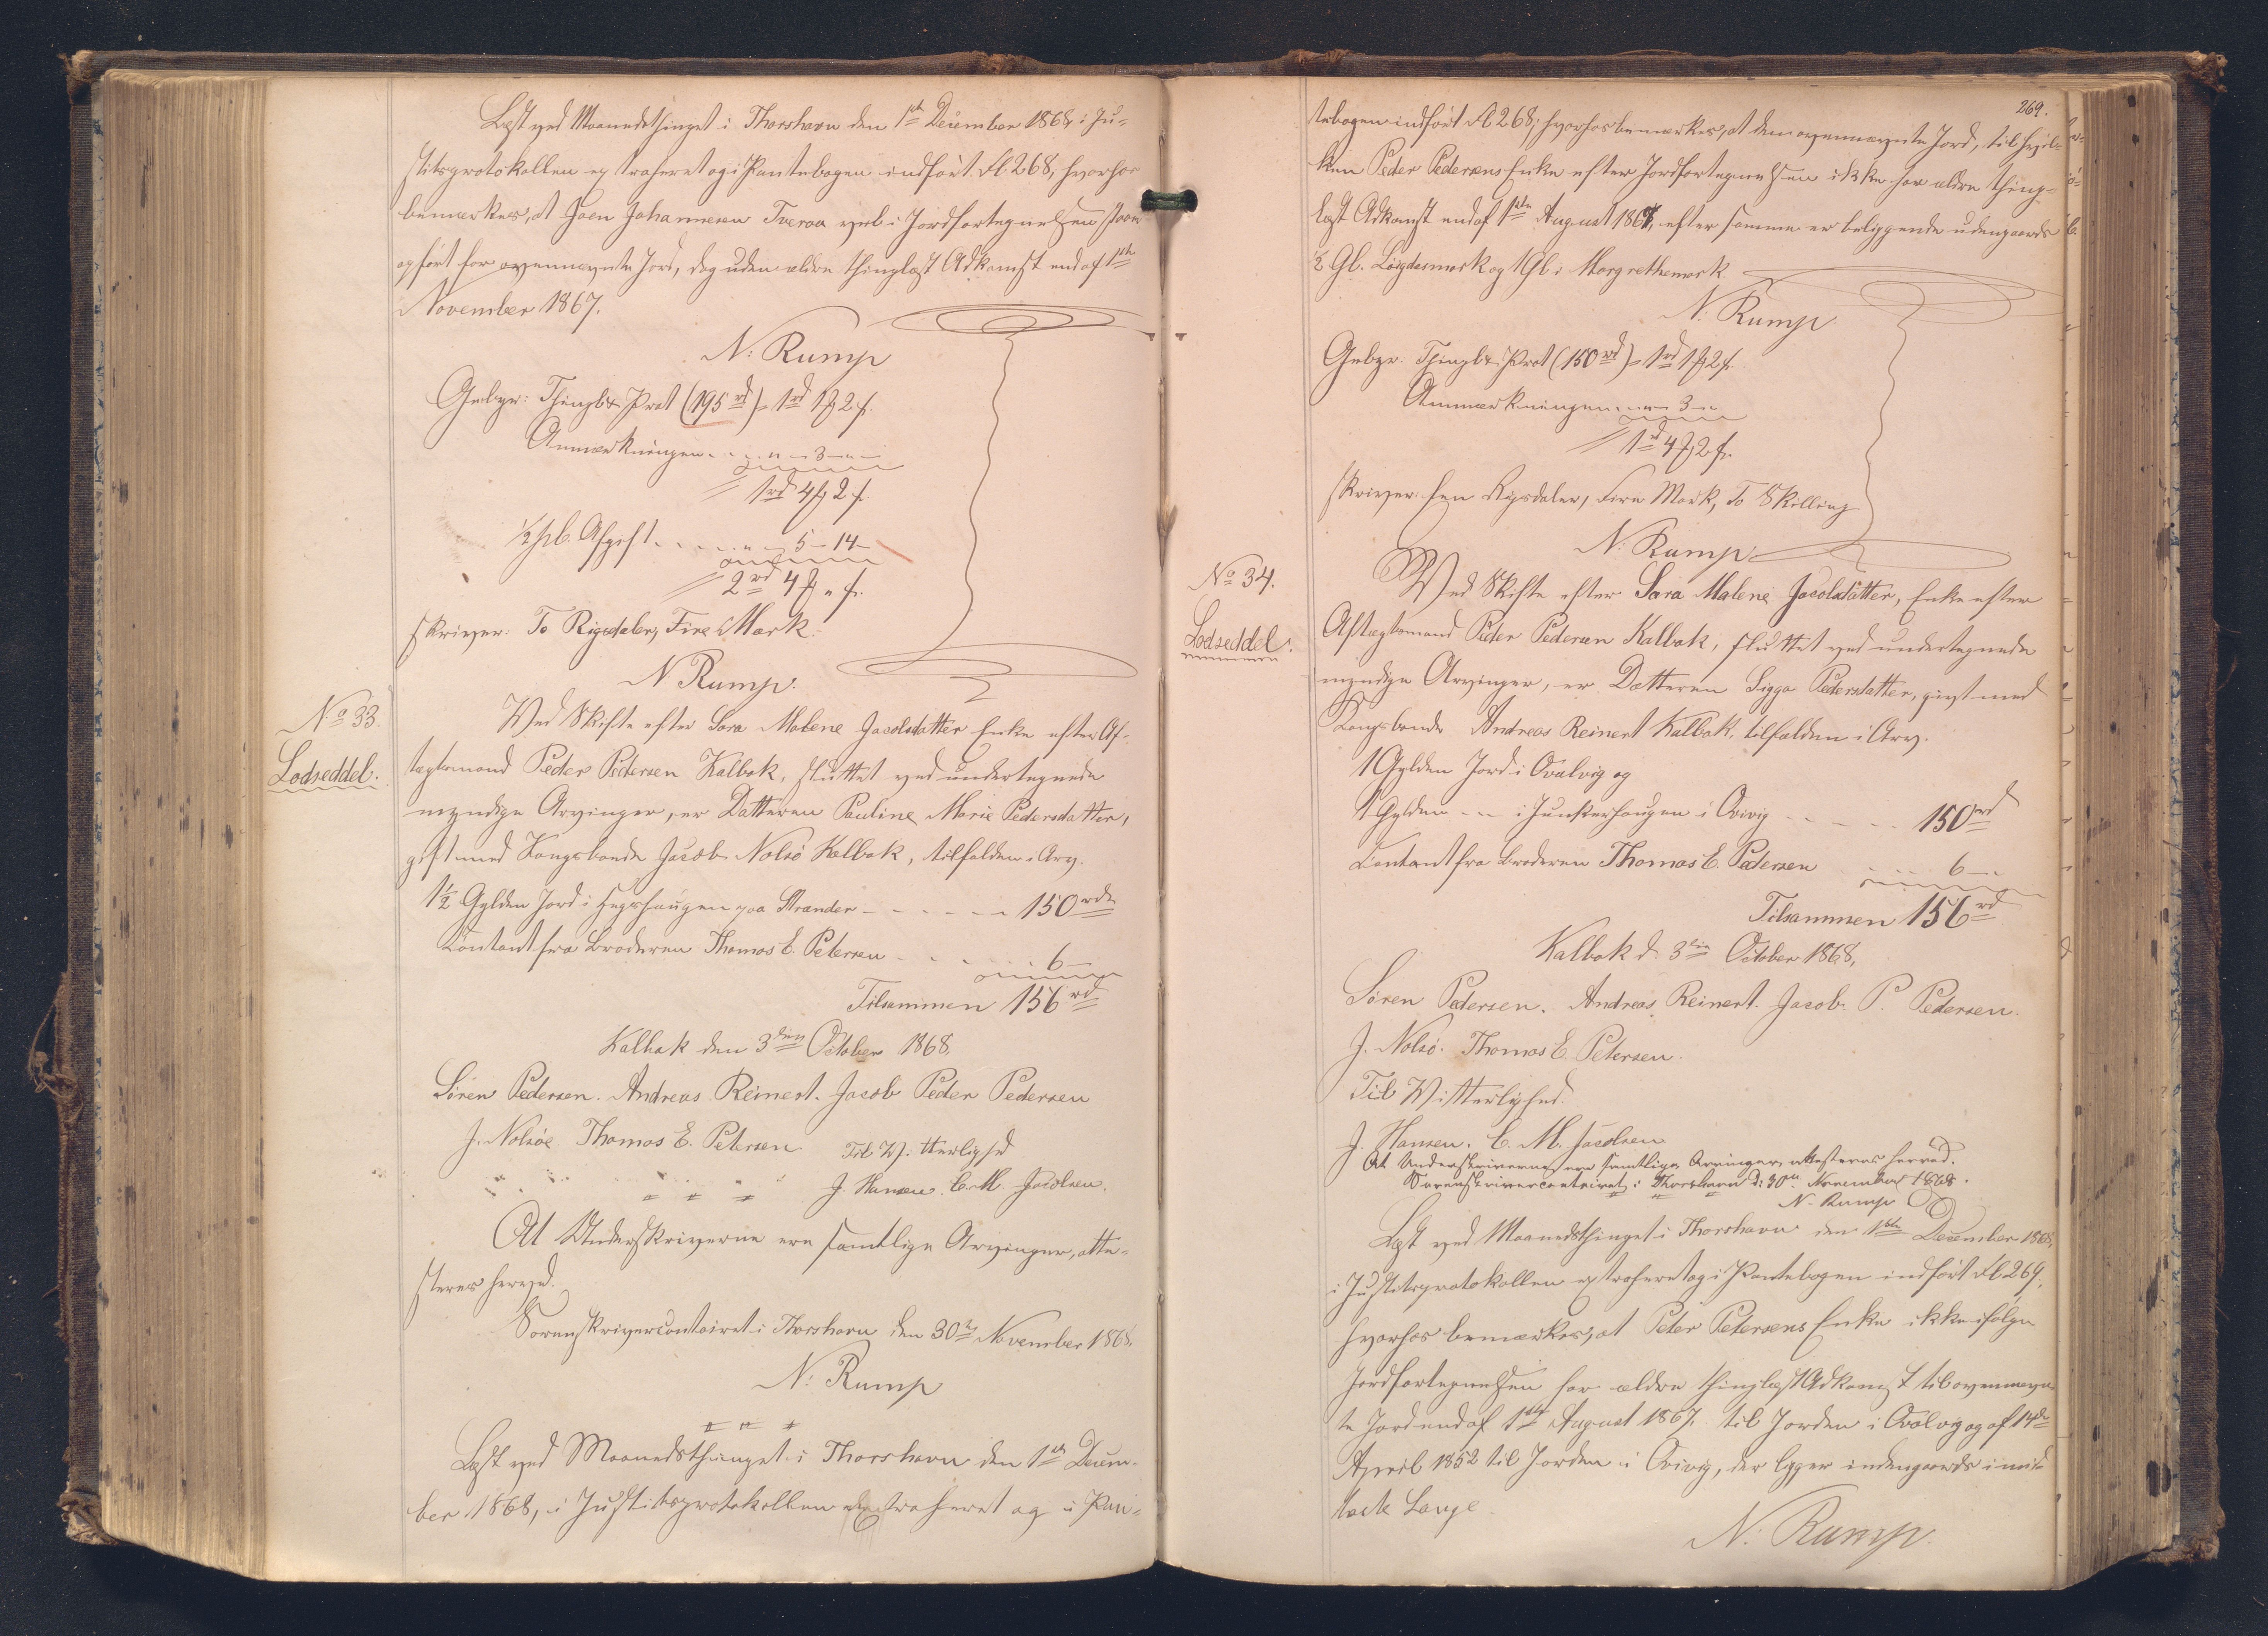 Læst ved Maanedsthinget i Thorshavn den 1ste December 1868, i Ju-
stitsprotokollen extraheret og i Pantebogen indført Fl. 268, hvorhos
bemærkes, at Joen Johannesen Tveraa vel i Jordfortegnelsen staar
opført for ovennævnte Jord, dog uden ældre thinglæst Adkomst end af 1ste
November 1867.
N. Rump
Gebyr: Thingl. & Prot (195 rd) = 1 rd 1 ₰ 2 s.
Anmærkningen . . . " — 3 — " —
1 rd 4 ₰ 2 s.
1/2 pCt. Afgift . . . . . " — 5 — 14 —
2 rd 4 ₰ " s.
skriver: To Rigsdaler, Fire Mark.
N. Rump.
No 33.
Lodseddel.
Ved Skifte efter Sara Malene Jacobsdatter Enke efter Af-
tægtsmand Peder Pedersen Kalbak, sluttet ved undertegnede
myndige Arvinger, er Datteren Pauline Marie Pedersdatter,
gift med Kongsbonde Jacob Nolsø Kalbak, tilfalden i Arv.
1 1/2 Gylden Jord i Hegshaugen paa Strænder — — — — 150 rd
Contant fra Broderen Thomas E. Petersen . . . . . 6 —
Tilsammen 156 rd
Kalbak den 3die October 1868.
Søren Pedersen. Andreas Reinert. Jacob Peder Pedersen
J. Nolsøe Thomas E. Petersen Til Vitterlighed
J. Hansen. C. M. Jacobsen.
At Underskriverne ere samtlige Arvinger, atte-
steres herved.
Sorenskrivercontoiret i Thorshavn den 30te November 1868.
N. Rump
Læst ved Maanedsthinget i Thorshavn den 1ste Decem-
ber 1868, i Justitsprotokollen extraheret og i Pan-
269.
tebogen indført Fl. 268, hvorhos bemærkes, at den ovennævnte Jord, til hvil-
ken Peder Pedersens Enke efter Jordfortegnelsen ikke har ældre thing-
læst Adkomst end af 1ste August 1867, efter samme er beliggende udengaards
1/2 Gl. Løigdesmark og 1 Gl. i Margrethemark.
N. Rump
Gebyr: Thingl. & Prot (150 rd) = 1 rd 1 ₰ 2 s.
Anmærkningen . . . " — 3 — "
1 rd 4 ₰ 2 s.
skriver: Een Rigsdaler, Fire Mark, To Skilling
N. Rump
No 34.
Lodseddel.
Ved Skifte efter Sara Malene Jacobsdatter, Enke efter
Aftægtsmand Peder Pedersen Kalbak, sluttet ved undertegnede
myndige Arvinger, er Datteren Sigga Pedersdatter, givt med
Kongsbonde Andreas Reinert Kalbak, tilfalden i Arv.
1 Gylden Jord i Qvalvig og
1 Gylden — " — i Junkerhaugen i Qvivig — — — — — 150 rd
Contant fra Broderen Thomas E. Pedersen . . . 6 —
Tilsammen 156 rd
Kalbak d. 3die October 1868.
Søren Pedersen. Andreas Reinert. Jacob P. Pedersen.
J. Nolsø. Thomas E. Petersen.
Til Vitterlighed.
J. Hansen. C. M. Jacobsen
At Underskriverne ere samtlige Arvinger attesteres herved.
Sorenskrivercontoiret i Thorshavn d: 30te November 1868.
N. Rump
Læst ved Maanedsthinget i Thorshavn den 1ste December 1868,
i Justitsprotokollen extraheret og i Pantebogen indført Fl. 269,
hvorhos bemærkes, at Peter Petersens Enke ikke ifølge
Jordfortegnelsen har ældre thinglæst Adkomst til ovennævn-
te Jord end af 1ste August 1867 til Jorden i Qvalvig og af 14de
April 1852 til Jorden i Qvivig, der ligger indengaards i
N. Rump.